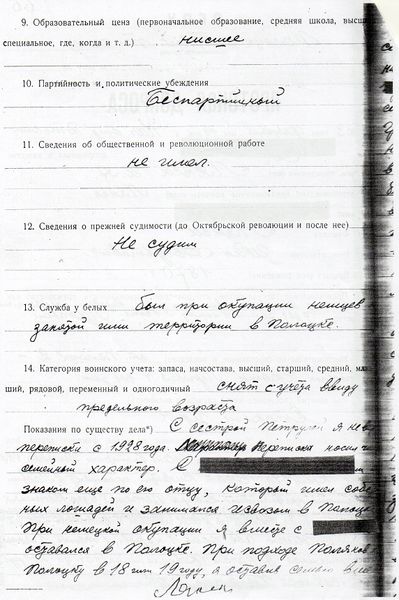 9. Образовательный ценз (первоначальное образование, средняя школа, высш
специальное, где, когда и т. д.) низшее
10. Партийность и политические убеждения
Беспартийный
11. Сведения об общественной и революционной работе
не имел.
12. Сведения о прежней судимости (до Октябрьской революции и после нее)
Не судим
13. Служба у белых был при окупации немцев
занятой ими территории в Полоцке.
14. Категория воинского учета: запаса, начсостава, высший, старший, средний, мла
ший, рядовой, переменный и одногодичный снят с учета ввиду
предельного возраста
Показания по существу дела*) С сестрой я не в
переписки с 1928 года. переписка носила
семейный характер. С
знаком еще по его отцу, который имел собс
ных лошадей и занимался извозом в Полоцк
При немецкой окупации я вместе с
оставался в Полоцке. При подходе Поляков
Полоцку в 18 или 19 году, я оставив